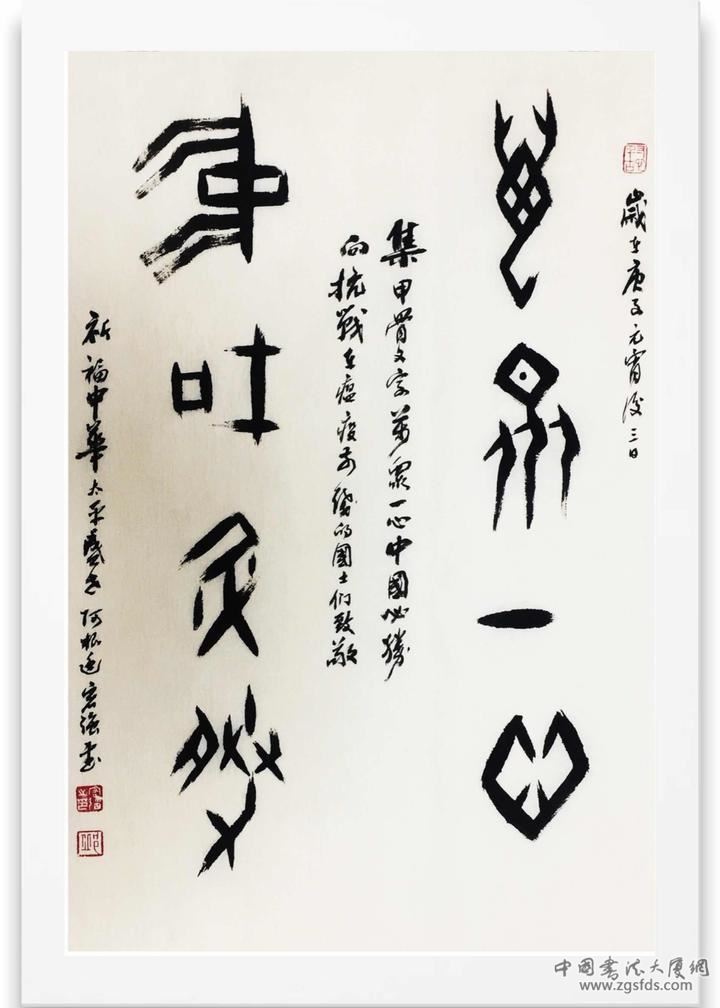 歲在庚子元宵後三日
萬眾一心
集甲骨文字萬眾一心中國必勝
向抗戰在瘟疫前綫的國士们致敬
中國必勝
祈福中華太平盛世阿根廷宏強書
中國書法大厦網
www.zgsfds.com